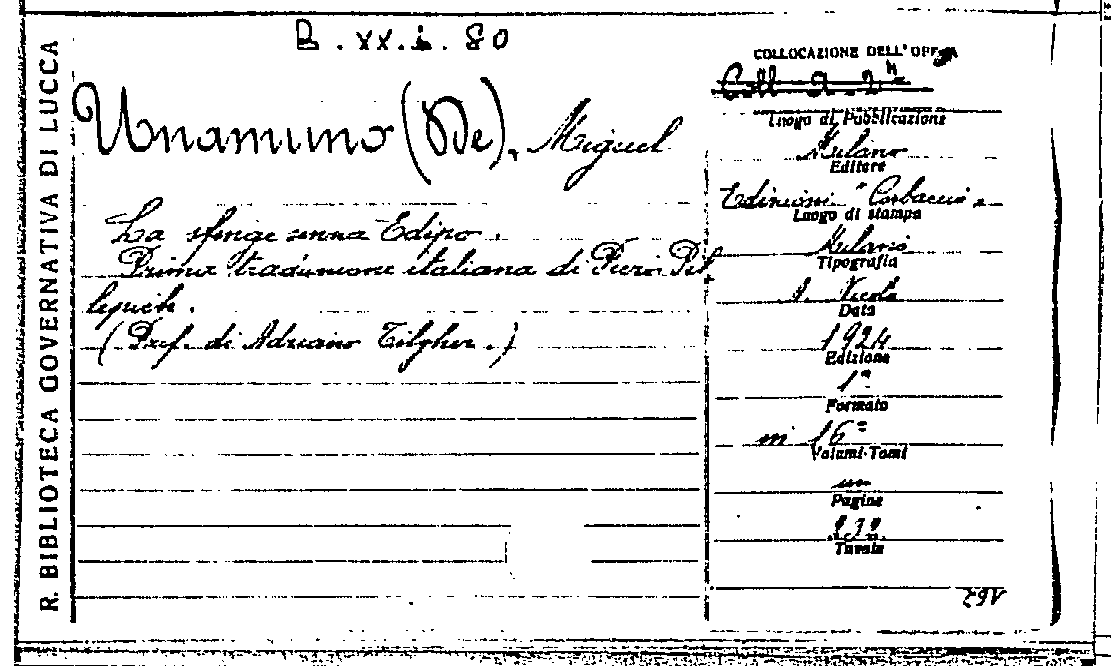 B. XX. i. 80
COLLOCAZIONE DELL'OPERA
Coll. 2-2
R. BIBLIOTECA GOVERNATIVA DI LUCCA
Unamuno (De), Miguel
La sfinge senza Edipo.
Prima traduzione italiana di Piero Pil-
lepich.
(Pref. di Adriano Tilgher.)
Luogo di Pubblicazione
Milano
Editore
Edizioni "Corbaccio"
Luogo di stampa
Milano
Tipografia
Data
1924
Edizione
1ª
Formato
in 16°
Volumi-Tomi
un
Pagine
232
Tavole